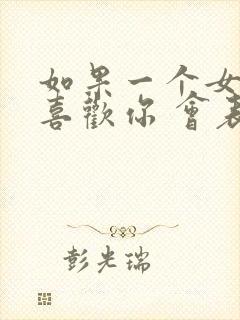 如果一个女
喜歡你會表
彭光瑞